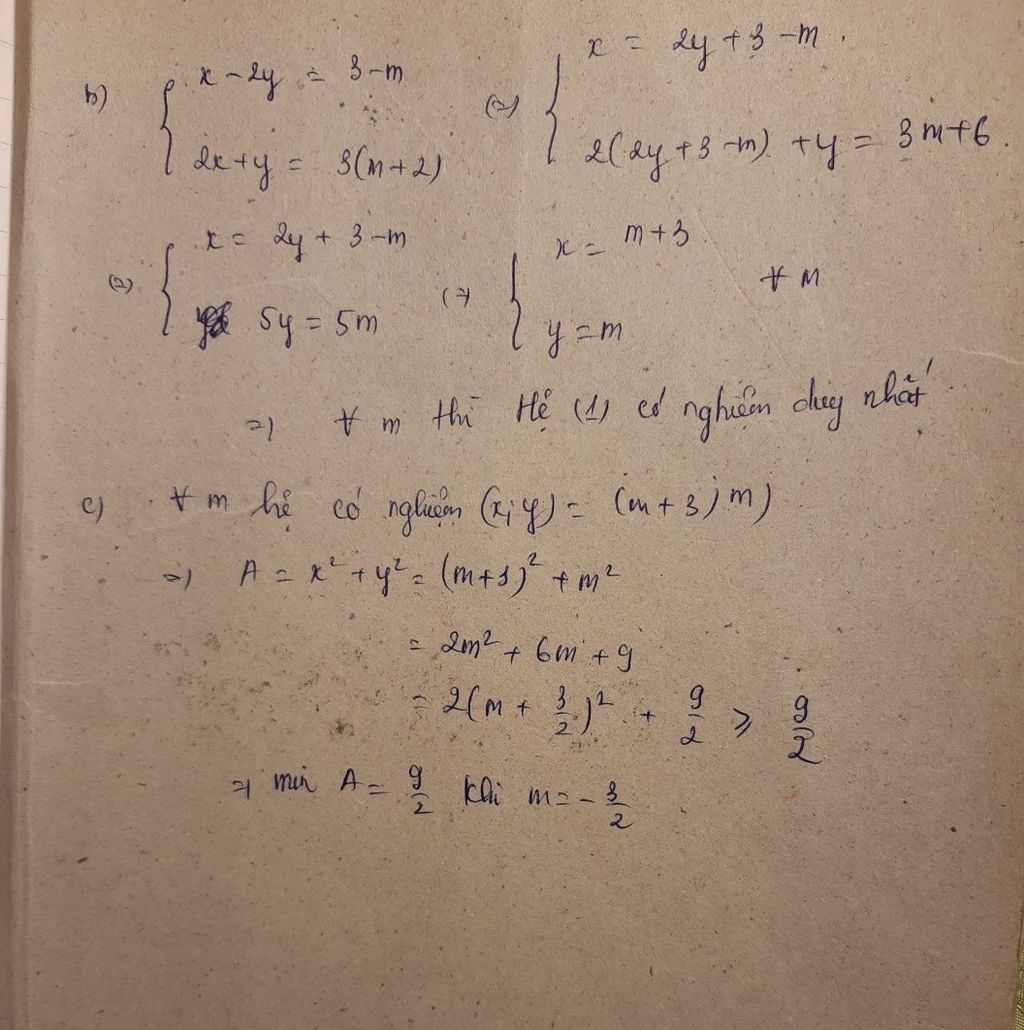 b) { x - 2y = 3 - m (=) { x = 2y + 3 - m.
2x + y = 3(m + 2) 2(2y + 3 - m) + y = 3m + 6.
(=) { x = 2y + 3 - m (=) { x = m + 3 ∀ m
5y = 5m y = m
=) ∀ m thì Hệ (1) có nghiệm duy nhất
c) ∀ m hệ có nghiệm (x; y) = (m + 3; m)
=) A = x² + y² = (m + 3)² + m²
= 2m² + 6m + 9
= 2(m + 3/2)² + 9/2 ⩾ 9/2
=) min A = 9/2 khi m = - 3/2